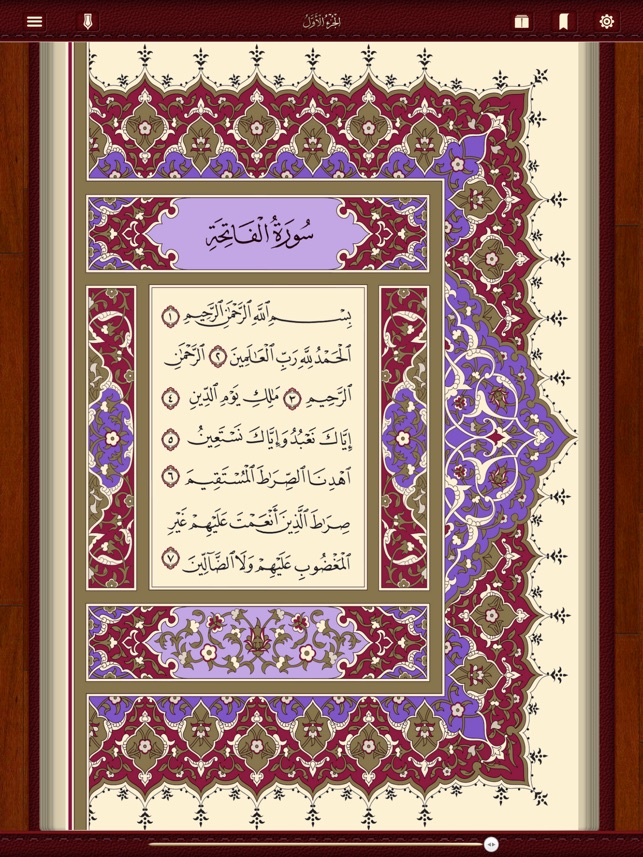 الجُزْءُ الأَوَّلُ
سُورَةُ الْفَاتِحَةِ
بِسْمِ ٱللَّهِ ٱلرَّحْمَٰنِ ٱلرَّحِيمِ ١
ٱلْحَمْدُ لِلَّهِ رَبِّ ٱلْعَٰلَمِينَ ٢ ٱلرَّحْمَٰنِ
ٱلرَّحِيمِ ٣ مَٰلِكِ يَوْمِ ٱلدِّينِ ٤
إِيَّاكَ نَعْبُدُ وَإِيَّاكَ نَسْتَعِينُ ٥
ٱهْدِنَا ٱلصِّرَٰطَ ٱلْمُسْتَقِيمَ ٦
صِرَٰطَ ٱلَّذِينَ أَنْعَمْتَ عَلَيْهِمْ غَيْرِ
ٱلْمَغْضُوبِ عَلَيْهِمْ وَلَا ٱلضَّآلِّينَ ٧